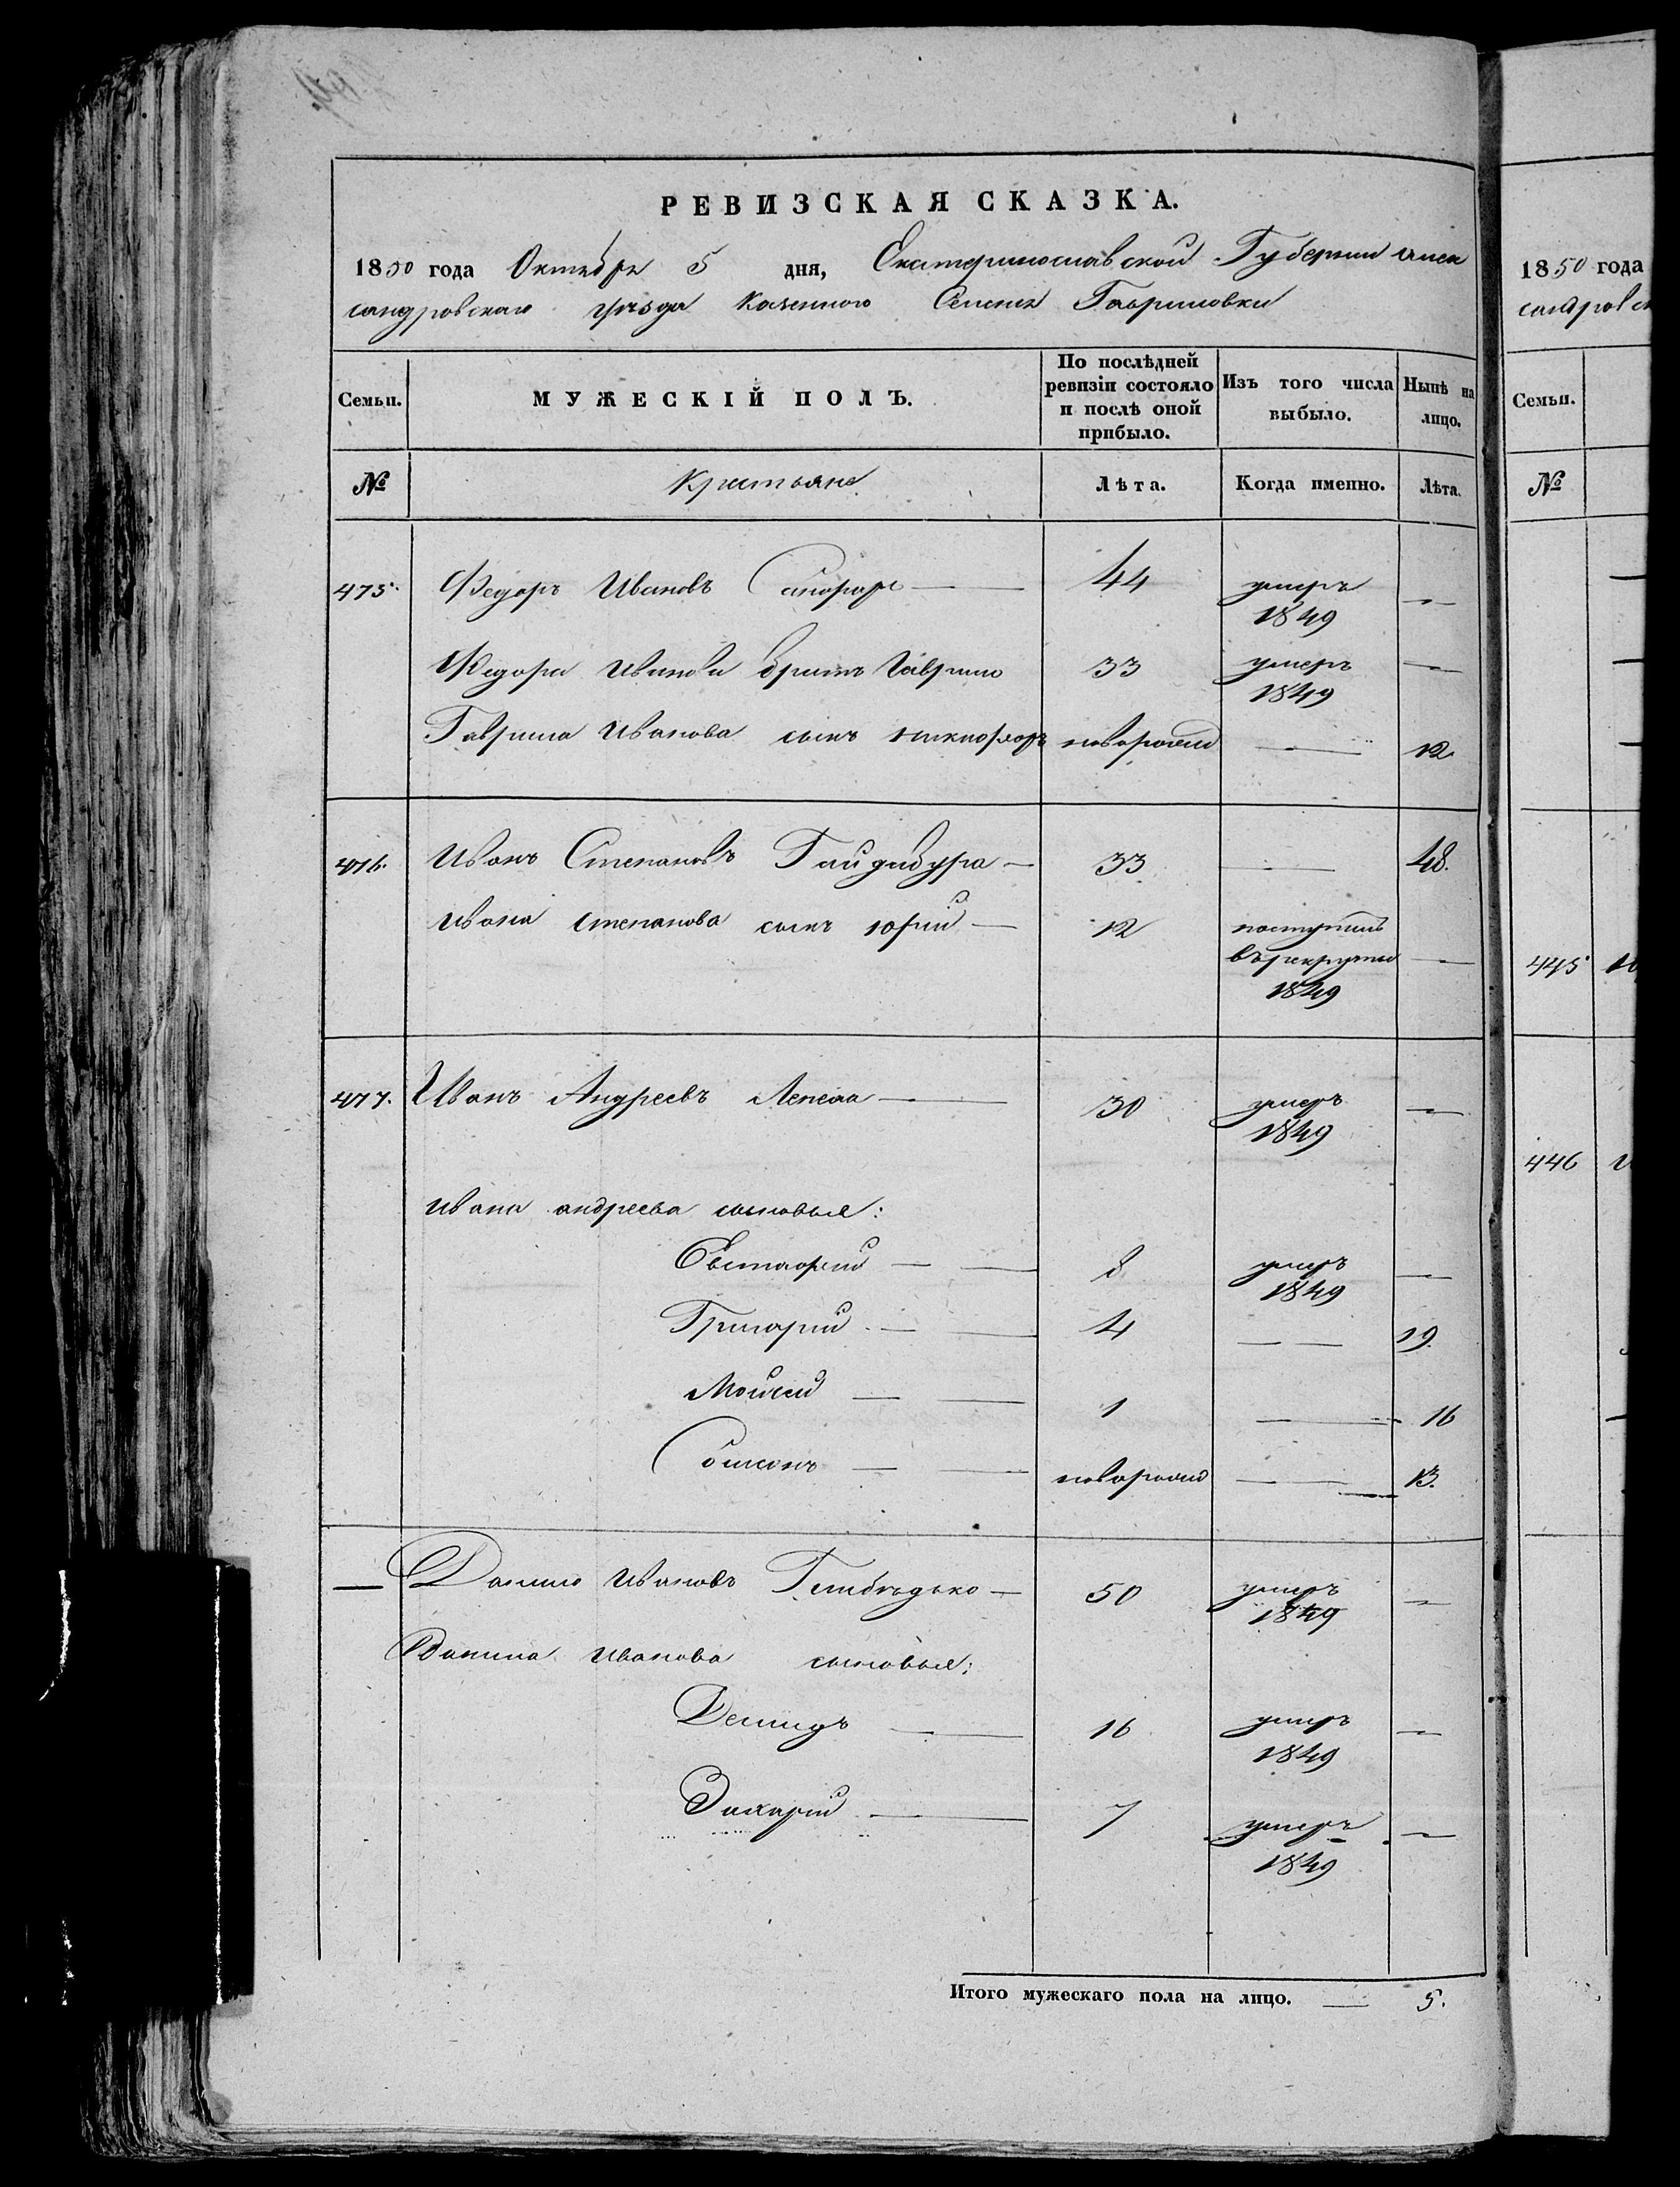 РЕВИЗСКАЯ СКАЗКА.
1850 года Октября 5 дня, Екатеринославской Губернии Алек
сандровскаго уѣзда Казеннаго Селенія Гавриловки
Семьи. МУЖЕСКІЙ ПОЛЪ. По послѣдней ревизіи состояло и послѣ оной прибыло. Изъ того числа выбыло. Нынѣ на лицо.
№ Крестьяне Лѣта. Когда именно. Лѣта.
475. Федоръ Ивановъ 44 умеръ 1849 —
Федора Иванова братъ Гаврило 33 умеръ 1849 —
Гаврила Иванова сынъ Никифоръ новорожд — 12
476. Иванъ Степановъ Гайдабура — 33 — 48.
Ивана Степанова сынъ Юрий — 12 поступилъ
въ рекруты —
1849
477. Иванъ Андреевъ Лепеха — 30 умеръ 1849 —
Ивана андреева сыновья:
Евстафий — 8 умеръ 1849 —
Григорий — 4 — 19.
Моисей — 1 — 16
Самсонъ — новорожд — 13.
— Данило Ивановъ — 50 умеръ 1849 —
Данила Иванова сыновья:
Демидъ — 16 умеръ 1849 —
Захарий — 7 умеръ 1849 —
Итого мужескаго пола на лицо. — 5.
1850 года
сандровск
Семьи.
№
445
446